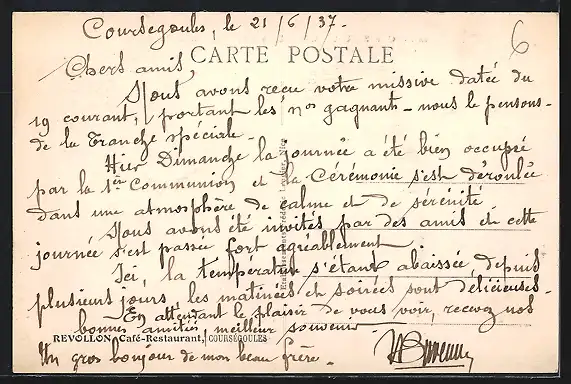 Coursegoules, le 21/6/37.
6
CARTE POSTALE
Chers amis,
Nous avons reçu votre missive datée du
19 courant, portant les nos gagnants - nous le pensons -
de la Tranche spéciale -
Hier Dimanche la journée a été bien occupée
par la 1ère Communion et la Cérémonie s'est déroulée
dans une atmosphère de calme et de sérénité.
Nous avons été invités par des amis et cette
journée s'est passée fort agréablement.
Ici, la température s'étant abaissée, depuis
plusieurs jours, les matinées et soirées sont délicieuses -
En attendant le plaisir de vous voir, recevez nos
bonnes amitiés, meilleur souvenir
REVOLLON Café-Restaurant, COURSEGOULES
Un gros bonjour de mon beau frère.